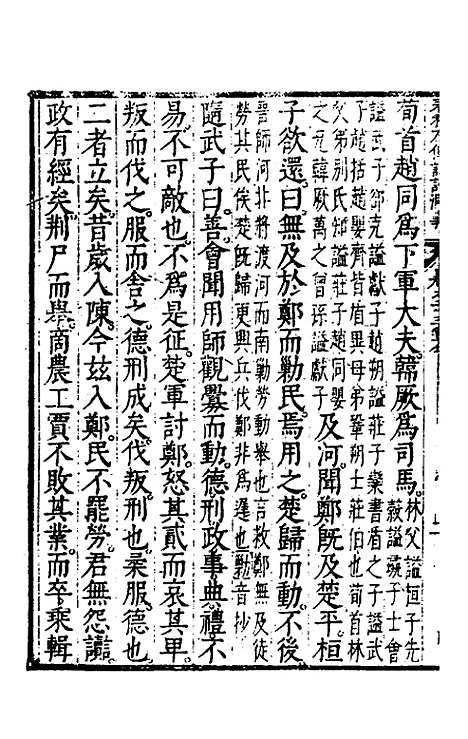 荀首趙同爲下軍大夫韓厥爲司馬林父謚桓子先
縠謚彘子士會
謚武子郤克謚獻子趙朔謚莊子欒書盾之子謚武
子趙括趙嬰齊皆盾異母弟鞏朔士莊伯也荀首林
父弟別氏知謚莊子趙同嬰
之兄韓厥萬之曾孫謚獻子及河聞鄭旣及楚平桓
子欲還曰無及於鄭而勦民焉用之楚歸而動不後
晉師河非將渡河而南勦勞動舉也言救鄭無及徒
勞其民俟楚旣歸更興兵伐鄭非爲遲也勦音抄
隨武子曰善會聞用師觀釁而動德刑政事典禮不
易不可敵也不爲是征楚軍討鄭怒其貳而哀其卑
叛而伐之服而舍之德刑成矣伐叛刑也柔服德也
二者立矣昔歲入陳今玆入鄭民不罷勞君無怨讟
政有經矣荆尸而舉商農工賈不敗其業而卒乘輯